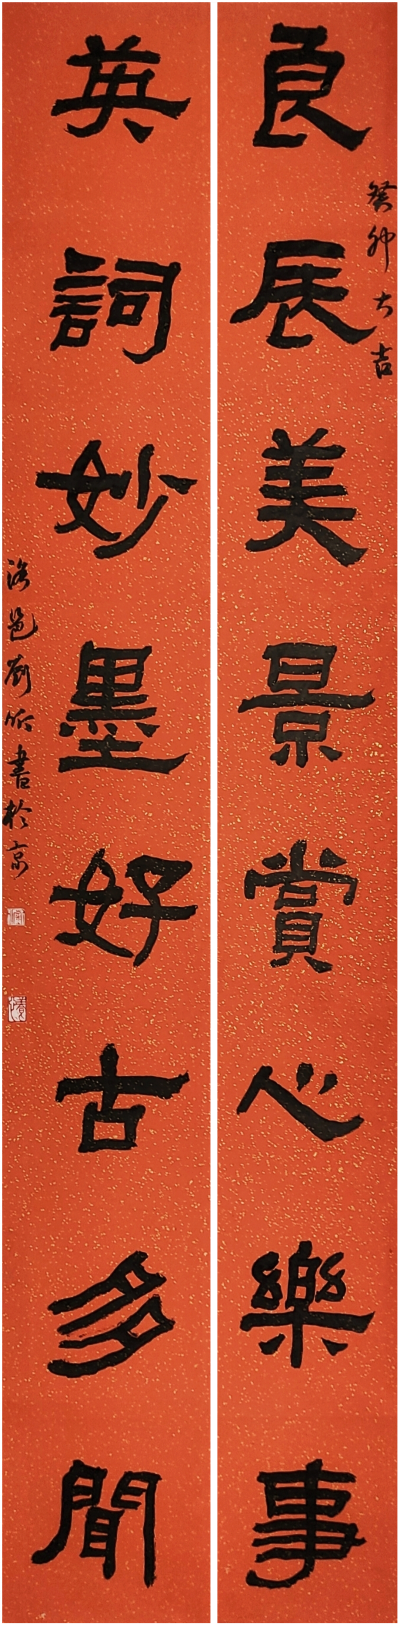 癸卯大吉
良辰美景賞心樂事
英詞妙墨好古多聞
洛邑劉昕書於京